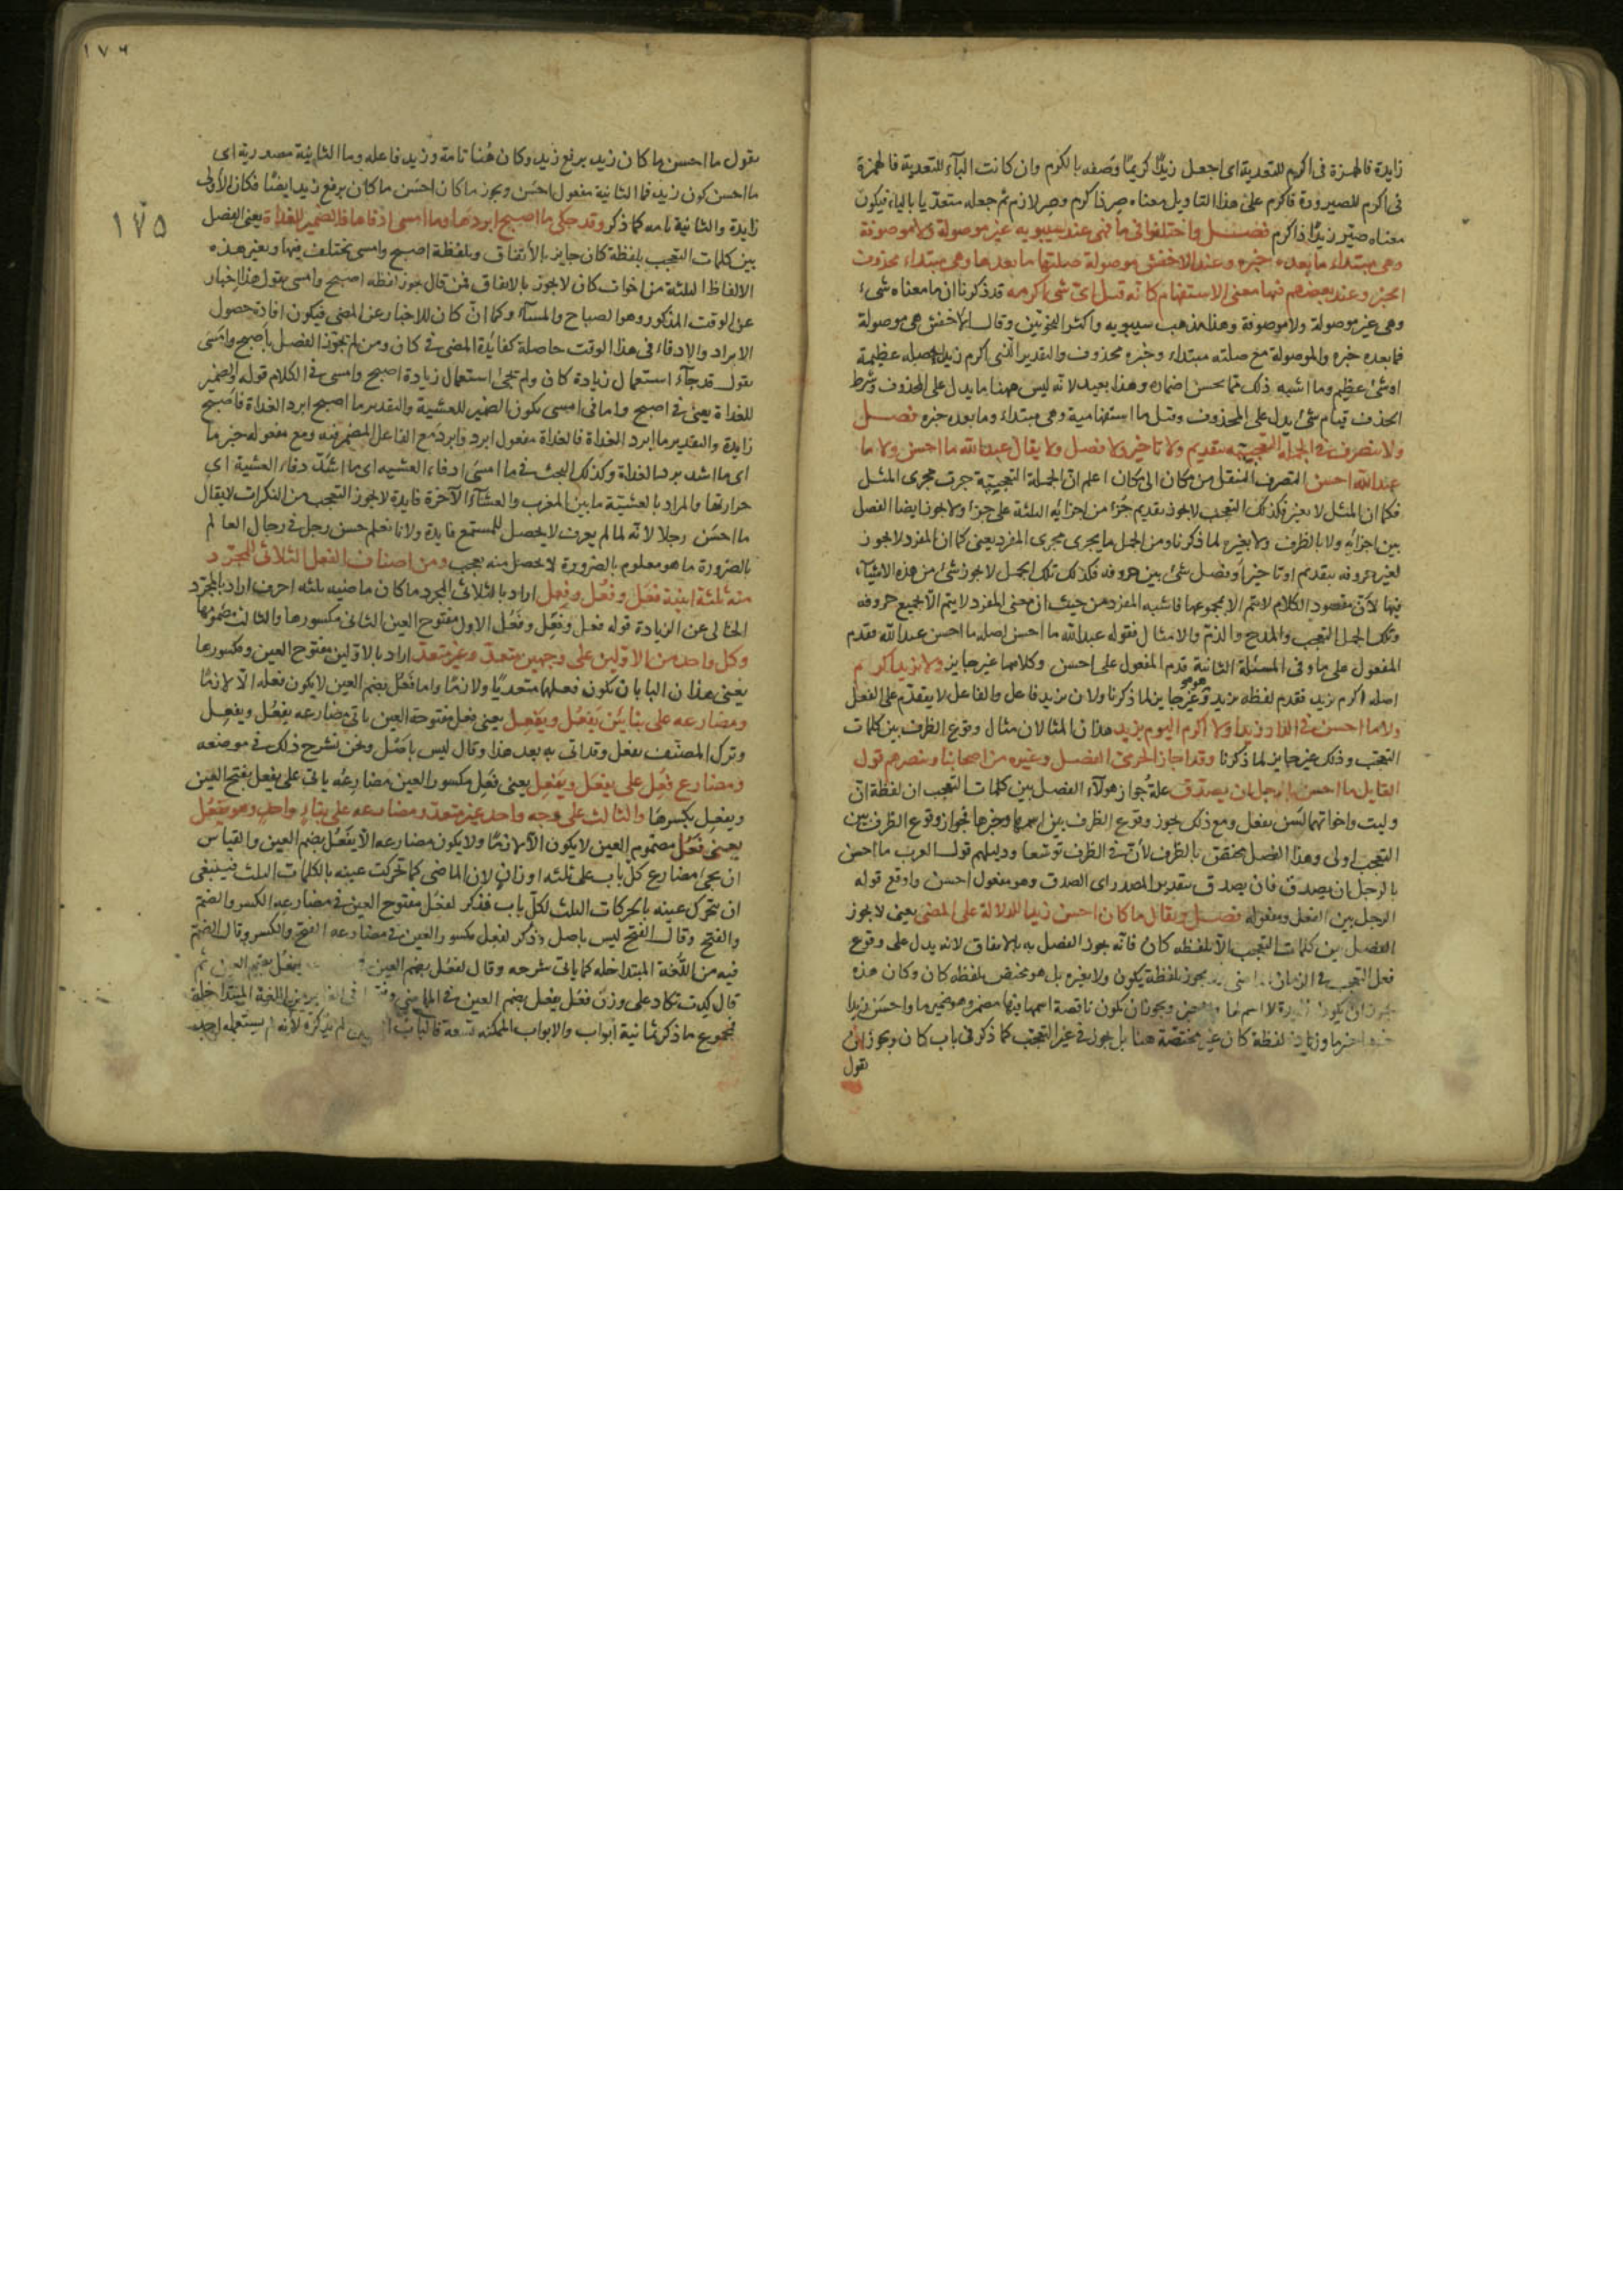 زايدة فالهمزة فى اكرم للتعدية اى اجعل زيدًا كريمًا وصفه بالكرم وان كانت الباء للتعدية فالهمزة
فى اكرم للصيرورة فاكرم على هذا التاويل معناه صر ذا كرم وصر لازم ثم جعله متعديا بالباء فيكون
معناه صيّر زيدًا ذا كرم فصـــل واختلفوا فى ما فهى عند سيبويه غير موصولة ولا موصوفة
وهى مبتداء ما بعده خبره وعند الاخفش موصولة صلتها ما بعدها وهى مبتداء محذوف
الخبر وعند بعضهم فيها معنى الاستفهام كانه قيل اى شى اكرمه قد ذكرنا ان ما معناه شىء
وهى غير موصولة ولا موصوفة وهذا مذهب سيبويه واكثر النحويين وقال الاخفش هى موصولة
فما بعده خبره والموصولة مع صلته مبتداء وخبره محذوف والتقدير الذى اكرم زيدا عظيمة
او شئ عظيم وما اشبه ذلك مما يحسن اضماره وهذا بعيد لانه ليس ههنا ما يدل على المحذوف وشرط
الحذف قيام شئ يدل على المحذوف وقيل ما استفهامية وهى مبتداء وما بعده خبره فصـــل
ولا يتصرف فى الجملة التعجبية بتقديم ولا تاخير ولا فصل ولا يقال عبد الله ما احسن ولا ما
عبد الله احسن التصرف التنقل من مكان الى مكان اعلم ان الجملة التعجبية جرت مجرى المثل
فكما ان المثل لا يغير فكذلك التعجب لا يجوز تقديم جزء من اجزائه الثلثة على جزء ولا يجوز ايضا الفصل
بين اجزائه ولا بالظرف ولا بغيره لما ذكرنا ومن الجمل ما يجرى مجرى المفرد يعنى كما ان المفرد لا يجوز
تغير حروفه بتقديم او تاخير او فصل شئ بين حروفه فكذلك تلك الجمل لا يجوز شئ من هذه الاشياء
فيها لان مقصود الكلام لا يتم الا بمجموعها فاشبه المفرد من حيث ان معنى المفرد لا يتم الا بجميع حروفه
وتلك الجمل التعجب والمدح والذم والامثال فقوله عبد الله ما احسن اصله ما احسن عبد الله فقدم
المفعول على ما وفى المسئلة الثانية قدم المفعول على احسن وكلاهما غير جايز ولا بزيد اكرم
اصله اكرم بزيد فقدم لفظه بزيد وهو غير جايز لما ذكرنا ولان بزيد فاعل والفاعل لا يتقدم على الفعل
ولا ما احسن فى الدار زيدا ولا اكرم اليوم بزيد هذان المثالان مثال وقوع الظرف بين كلمات
التعجب وذلك غير جايز لما ذكرنا وقد اجاز الجرمى الفصل وغيره من اصحابنا وينصرهم قول
القايل ما احسن بالرجل ان يصدق علة جواز هولاء الفصل بين كلمات التعجب ان لفظة ان
وليت واخواتهما ليس بفعل ومع ذلك يجوز وقوع الظرف بين اسمها وخبرها فجواز وقوع الظرف بين
التعجب اولى وهذا الفصل مختص بالظرف لان فى الظرف توسعا ودليلهم قول العرب ما احسن
بالرجل ان يصدق فان يصدق بتقدير المصدر اى الصدق وهو مفعول احسن واوقع قوله
الرجل بين الفعل ومفعوله فصـــل ويقال ما كان احسن زيدا للدلالة على المضى يعنى لا يجوز
الفصل بين كلمات التعجب الا بلفظه كان فانه يجوز الفصل به بالاتفاق لانه يدل على وقوع
فعل التعجب فى الزمان الماضى يجوز بلفظة يكون ولا بغيره بل هو مختص بلفظه كان وكان هذه
يجوز ان يكون زايدة لا اسم لها ولا خبر ويجوز ان تكون ناقصة اسمها فيها مضمر وهو ضمير ما واحسن زيدا
خبرها وزيادة لفظة كان غير مختصة هنا بل يجوز فى غير التعجب كما ذكر فى باب كان ويجوز ان
تقول
١٧٦
١٧٥
تقول ما احسن ما كان زيد برفع زيد وكان هنا تامة وزيد فاعله وما الثانية مصدرية اى
ما احسن كون زيد فما الثانية مفعول احسن ويجوز ما كان احسن ما كان برفع زيد ايضًا فكان الاولى
زايدة والثانية تامه كما ذكر وقد حكى ما اصبح ابردها وما امسى ادفاها فالضمير للغداة يعنى الفصل
بين كلمات التعجب بلفظة كان جايز بالاتفاق وبلفظة اصبح وامسى يختلف فيها وبغير هذه
الالفاظ الثلثة من اخوات كان لا يجوز بالاتفاق فمن قال يجوز لفظه اصبح وامسى يقول هذا اخبار
عن الوقت المذكور وهو الصباح والمساء وكما ان كان للاخبار عن المضى فيكون افادة حصول
الابراد والادفاء فى هذا الوقت حاصلة كفائدة المضى فى كان ومن لم يجوز الفصل باصبح وامسى
يقول قد جاء استعمال زيادة كان ولم تجئ استعمال زيادة اصبح وامسى فى الكلام قوله والضمير
للغداة يعنى فى اصبح واما فى امسى يكون الضمير للعشية والتقدير ما اصبح ابرد الغداة فاصبح
زايدة والتقدير ما ابرد الغداة فالغداة مفعول ابرد وابرد مع الفاعل المضمر فيه ومع مفعوله خبر ما
اى ما اشد برد الغداة وكذلك البحث فى ما امسى ادفاء العشيه اى ما اشد دفاء العشية اى
حرارتها والمراد بالعشية ما بين المغرب والعشاء الآخرة فايدة لا يجوز التعجب من النكرات لا يقال
ما احسن رجلا لانه لما لم يعرف لا يحصل للمستمع فايدة ولانا نعلم حسن رجل فى رجال العالم
بالضرورة ما هو معلوم بالضرورة لا يحصل منه تعجب ومن اصناف الفعل الثلاثى المجرد
منه ثلثة ابنية فعَل وفعُل وفعِل اراد بالثلاثى المجرد ما كان ماضيه ثلثه احرف اراد بالمجرد
الخالى عن الزيادة قوله فعل وفعِل وفعُل الاول مفتوح العين الثانى مكسورها والثالث مضمومها
وكل واحد من الاولين على وجهين متعد وغير متعد اراد بالاولين مفتوح العين ومكسورها
يعنى هذان البابان تكون فعلهما متعديًا ولازمًا واما فعُل بضم العين لا يكون فعله الا لازمًا
ومضارعه على بنايَين يَفعُل ويفعِل يعنى فعل مفتوحة العين ياتى مضارعه يفعُل ويفعِل
وترك المصنف يفعَل وقد اتى به بعد هذا وقال ليس باصل ونحن نشرح ذلك فى موضعه
ومضارع فعِل على يفعَل ويفعِل يعنى فعِل مكسور العين مضارعه ياتى على يفعل بفتح العين
ويفعِل بكسرها والثالث على وجه واحد غير متعد ومضارعه على بناء واحد وهو يفعُل
يعنى فعُل مضموم العين لا يكون الا لازمًا ولا يكون مضارعه الا يفعُل بضم العين والقياس
ان يجئ مضارع كل باب على ثلثه اوزان لان الماضى كما تحركت عينه بالكلمات الثلث فينبغى
ان يتحرك عينه بالحركات الثلث لكل باب فذكر لفعل مفتوح العين فى مضارعه الكسر والضم
والفتح وقال الفتح ليس باصل وذكر لفعل مكسور العين فى مضارعه الفتح والكسر وقال الضم
فيه من اللغة المتداخله كما ياتى شرحه وقال لفعُل بضم العين يفعُل بضم العين ثم
قال كدت تكاد على وزن فعُل يفعل بضم العين فى الماضى اللغة المتداخلة
فمجموع ما ذكر ثمانية ابواب والابواب الممكنه تسعة فالباب لم يذكره لانه لم يستعمله احد